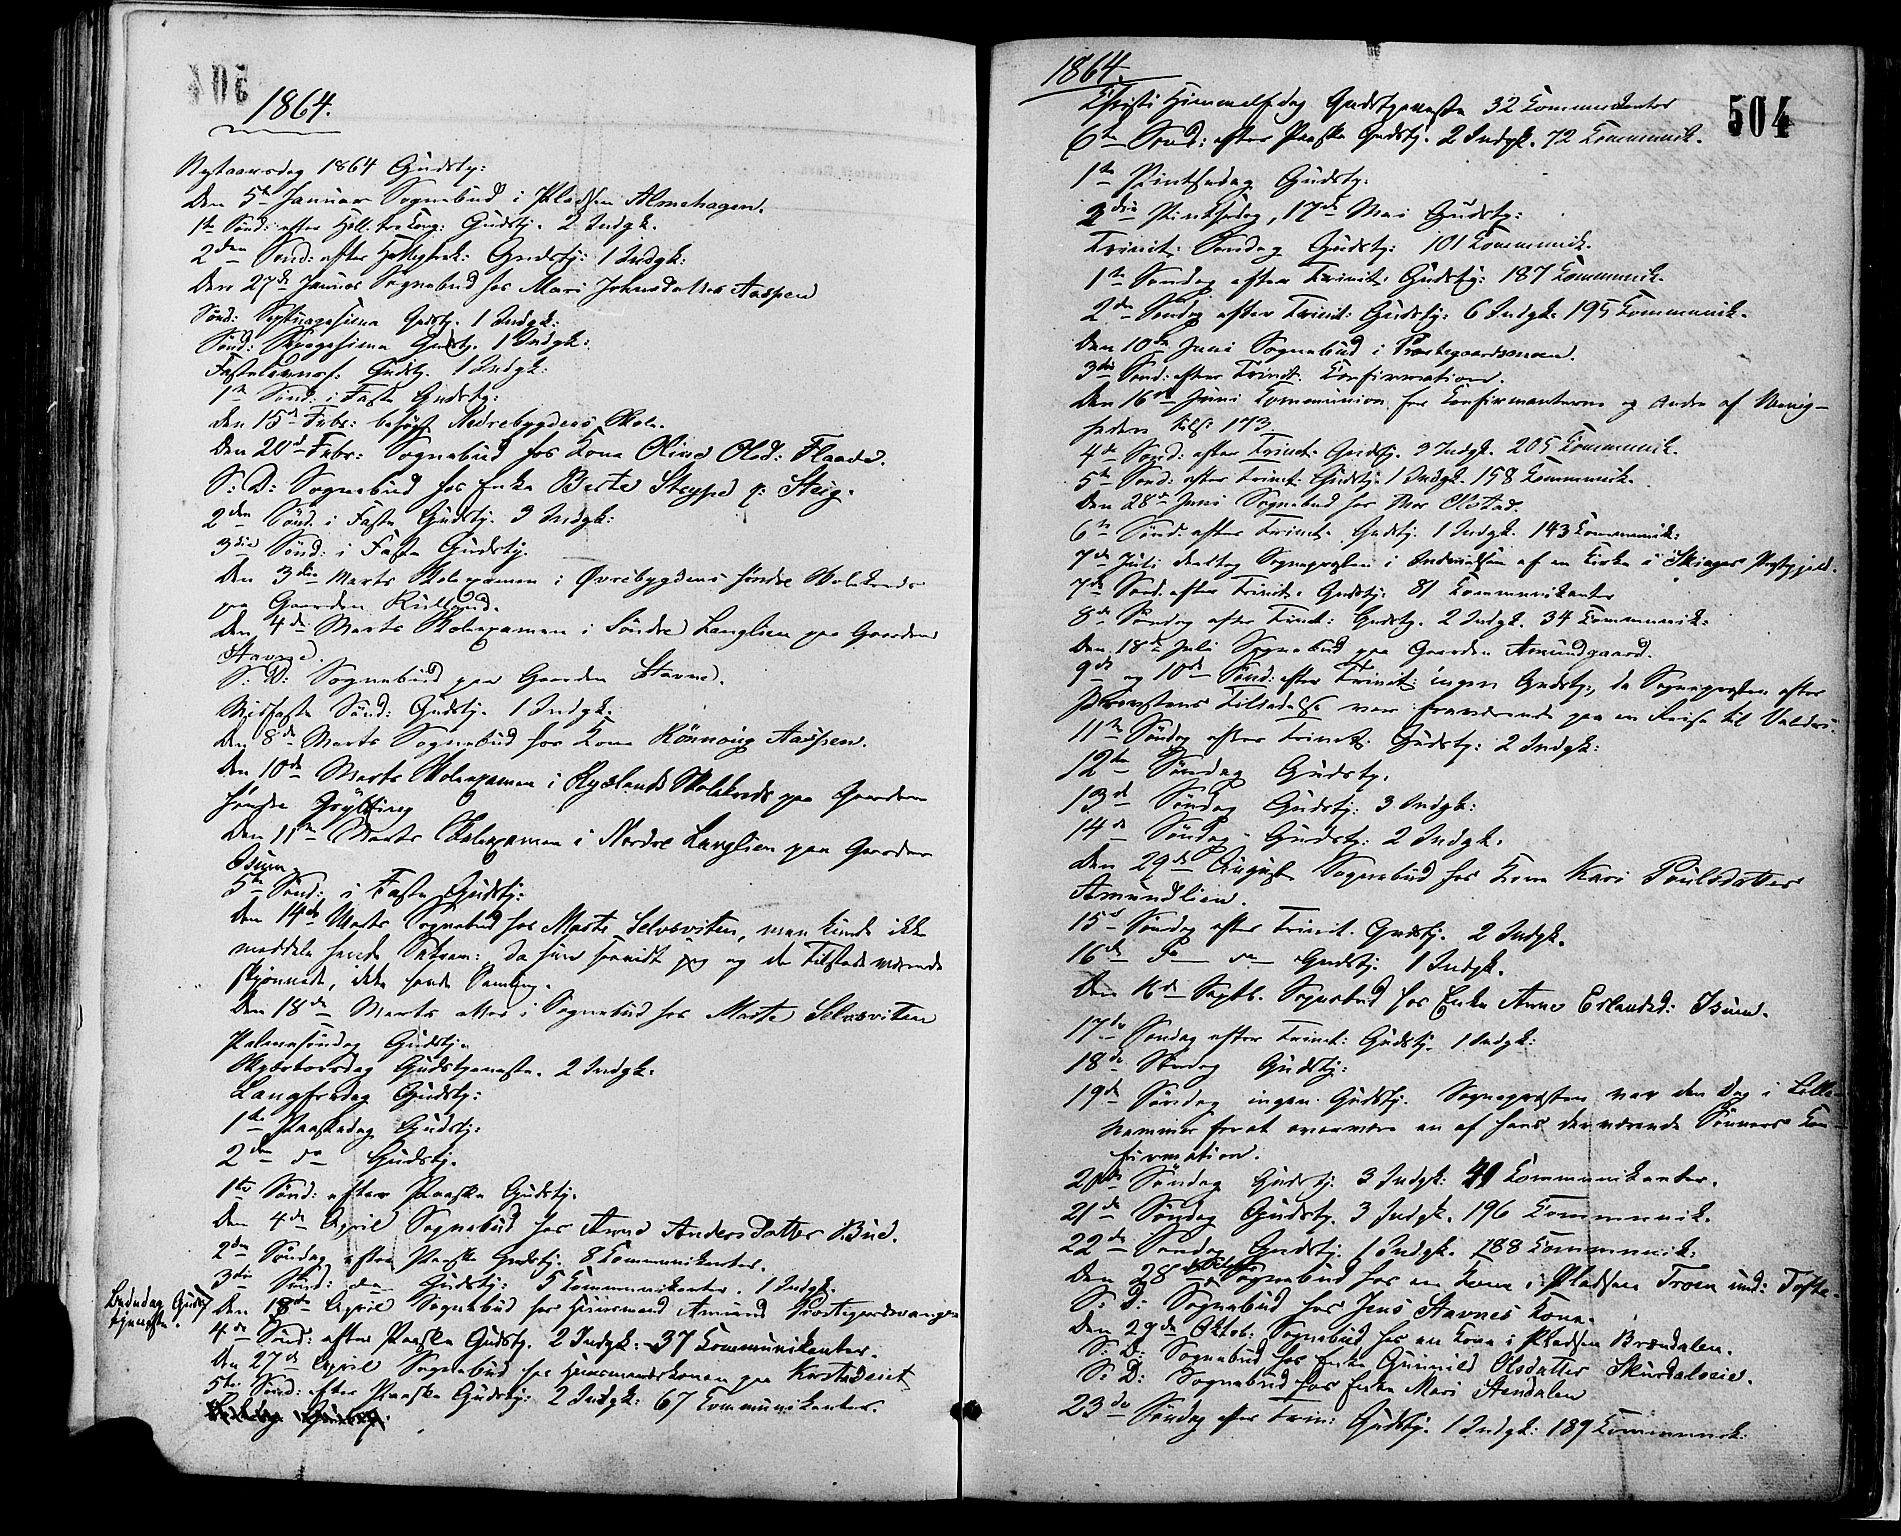 1864.
Nytaarsdag 1864 Gudstj:
Den 5te Januar Sognebud i Pladsen Almehagen.
1te Sønd: efter Hell. tre Kong: Gudstj. 2 Indgk.
2den Sønd: efter Helligtrek: Gudstj: 1 Indgk:
Den 27de Januar Sognebud hos Mari Johnsdatter Aaspen
Sønd: Septuagesima Gudstj. 1 Indgk:
Sønd: Sexagesima Gudstj. 1 Indgk:
Fastelavnss: Gudstj. 1 Indgk:
1te Sønd: i Faste Gudstj:
Den 15de Febr: besøgt Nedrebygdens Skole.
Den 20de Febr: Sognebud hos Kone Oline Olsd: Flaade.
S: D: Sognebud hos Enke Berte Steype p: Steig.
2den Sønd. i Faste Gudstj. 3 Indgk:
3die Sønd: i Faste Gudstj.
Den 3die Marts Skoleexamen i Øvrebygdens søndre Skolekreds
paa Gaarden Rulland.
Den 4de Marts Skoleexamen i Søndre Langlien paa Gaarden
Stavne.
S: D: Sognebud paa Gaarden Stavne.
Midfaste Sønd: Gudstj. 1 Indgk.
Den 8de Marts Sognebud hos Kone Rønnoug Aaspen.
Den 10de Marts Skoleexamen i Ryslands Skolekreds paa Gaarden
søndre Grytting
Den 11te Marts Skoleexamen i Nordre Langlien paa Gaarden
Isum.
5te Sønd: i Faste Gudstj:
Den 14de Marts Sognebud hos Marte Selvsviten, men kunde ikke
meddele hende Sakram: da hun saavidt jeg og de Tilstedeværende
skjønnede, ikke havde Samling.
Den 18de Marts atter i Sognebud hos Marte Selvsviten
Palmesøndag Gudstj.
Skjærtorsdag Gudstjeneste. 2 Indgk.
Langfredag Gudstj:
1te Paaskedag Gudstj:
2den do Gudstj.
1te Sønd: efter Paaske Gudstj.
Den 4de April Sognebud hos Anne Andersdatter Bue.
2den Søndag efter Paaske Gudstj. 8 Communikanter.
3die Sønd: do Gudstj: 5 Communikanter. 1 Indgk.
Bededag Gudstjeneste.
Den 18de April Sognebud hos Huusmand Amund Prestegardsvangen
4de Sønd: efter Paaske Gudstj. 2 Indgk: 37 Communikanter.
Den 27de April Sognebud hos Huusmandskonen paa Kirstideiet
5te Sønd: efter Paaske Gudstj: 2 Indgk: 67 Communikanter.
504
1864.
Christi Himmelf.dag Gudstjeneste 32 Communikanter
6te Sønd: efter Paaske Gudstj. 2 Indgk. 72 Communik.
1te Pintsedag Gudstj.
2den Pintsedag, 17de Mai Gudstj:
Trinit: Søndag Gudstj: 101 Communik.
1te Søndag efter Trinit: Gudstj: 187 Communik.
2den Søndag efter Trinit: Gudstj: 6 Indgk. 195 Communik.
Den 10de Juni Sognebud i Prestegaardsmoen.
3die Sønd: efter Trinit. Confirmation.
Den 16de Juni Communion for Confirmanterne og Andre af Menig-
heden tils: 173
4de Sønd: efter Trinit. Gudstj. 2 Indgk. 205 Communik.
5te Sønd: efter Trinit: Gudstj. 1 Indgk. 158 Communik.
Den 28de Juni Sognebud hos Mor Olstad.
6te Sønd: efter Trinit. Gudstj. 1 Indgk. 143 Communik:
7de Juli deeltog Sognepresten i Indvielsen af en Kirke i Skiager Prestegjeld.
7de Sønd: efter Trinit. Gudstj. 81 Communikanter
8de Søndag efter Trinit: Gudstj. 2 Indgk. 34 Communik:
Den 18de Juli Sognebud paa Gaarden Amundgaard.
9de og 10de Sønd: efter Trinit: ingen Gudstj:, da Sognepresten efter
Provstens Tilladelse var fraværende paa en Reise til Valders.
11te Søndag efter Trinit: Gudstj: 2 Indgk:
12te Søndag Gudstj.
13de Søndag Gudstj: 3 Indgk:
14de Søndag. Gudstj: 2 Indgk.
Den 29de August Sognebud hos Kone Kari Poulsdatter
Amundlien.
15de Søndag efter Trinit. Gudstj. 2 Indgk.
16de do do Gudstj. 1 Indgk.
Den 16de Septb. Sognebud hos Enke Anne Erlandsd: Isum.
17de Søndag efter Trinit: Gudstj. 1 Indgk:
18de Søndag Gudstj:
19de Søndag ingen Gudstj. Sognepresten var den Dag i Lille-
hammer for at overvære en af hans derværende Sønners Con-
firmation.
20de Søndag Gudstj. 3 Indgk: 41 Communikanter.
21de Søndag Gudstj. 3 Indgk. 196 Communik.
22de Søndag Gudstj. 1 Indgk. 188 Communik:
Den 28de Oktob: Sognebud hos en Kone i Pladsen Troen und: Tofte.
S: D: Sognebud hos Jens Stavnes Kone.
Den 29de Oktob: Sognebud hos en Kone i Pladsen Brændalen.
S: D: Sognebud hos Enke Gunnild Olsdatter Skurdalseie.
S: D: Sognebud hos Enke Mari Stendalen
23de Søndag efter Trin: Gudstj. 1 Indgk: 189 Communik: